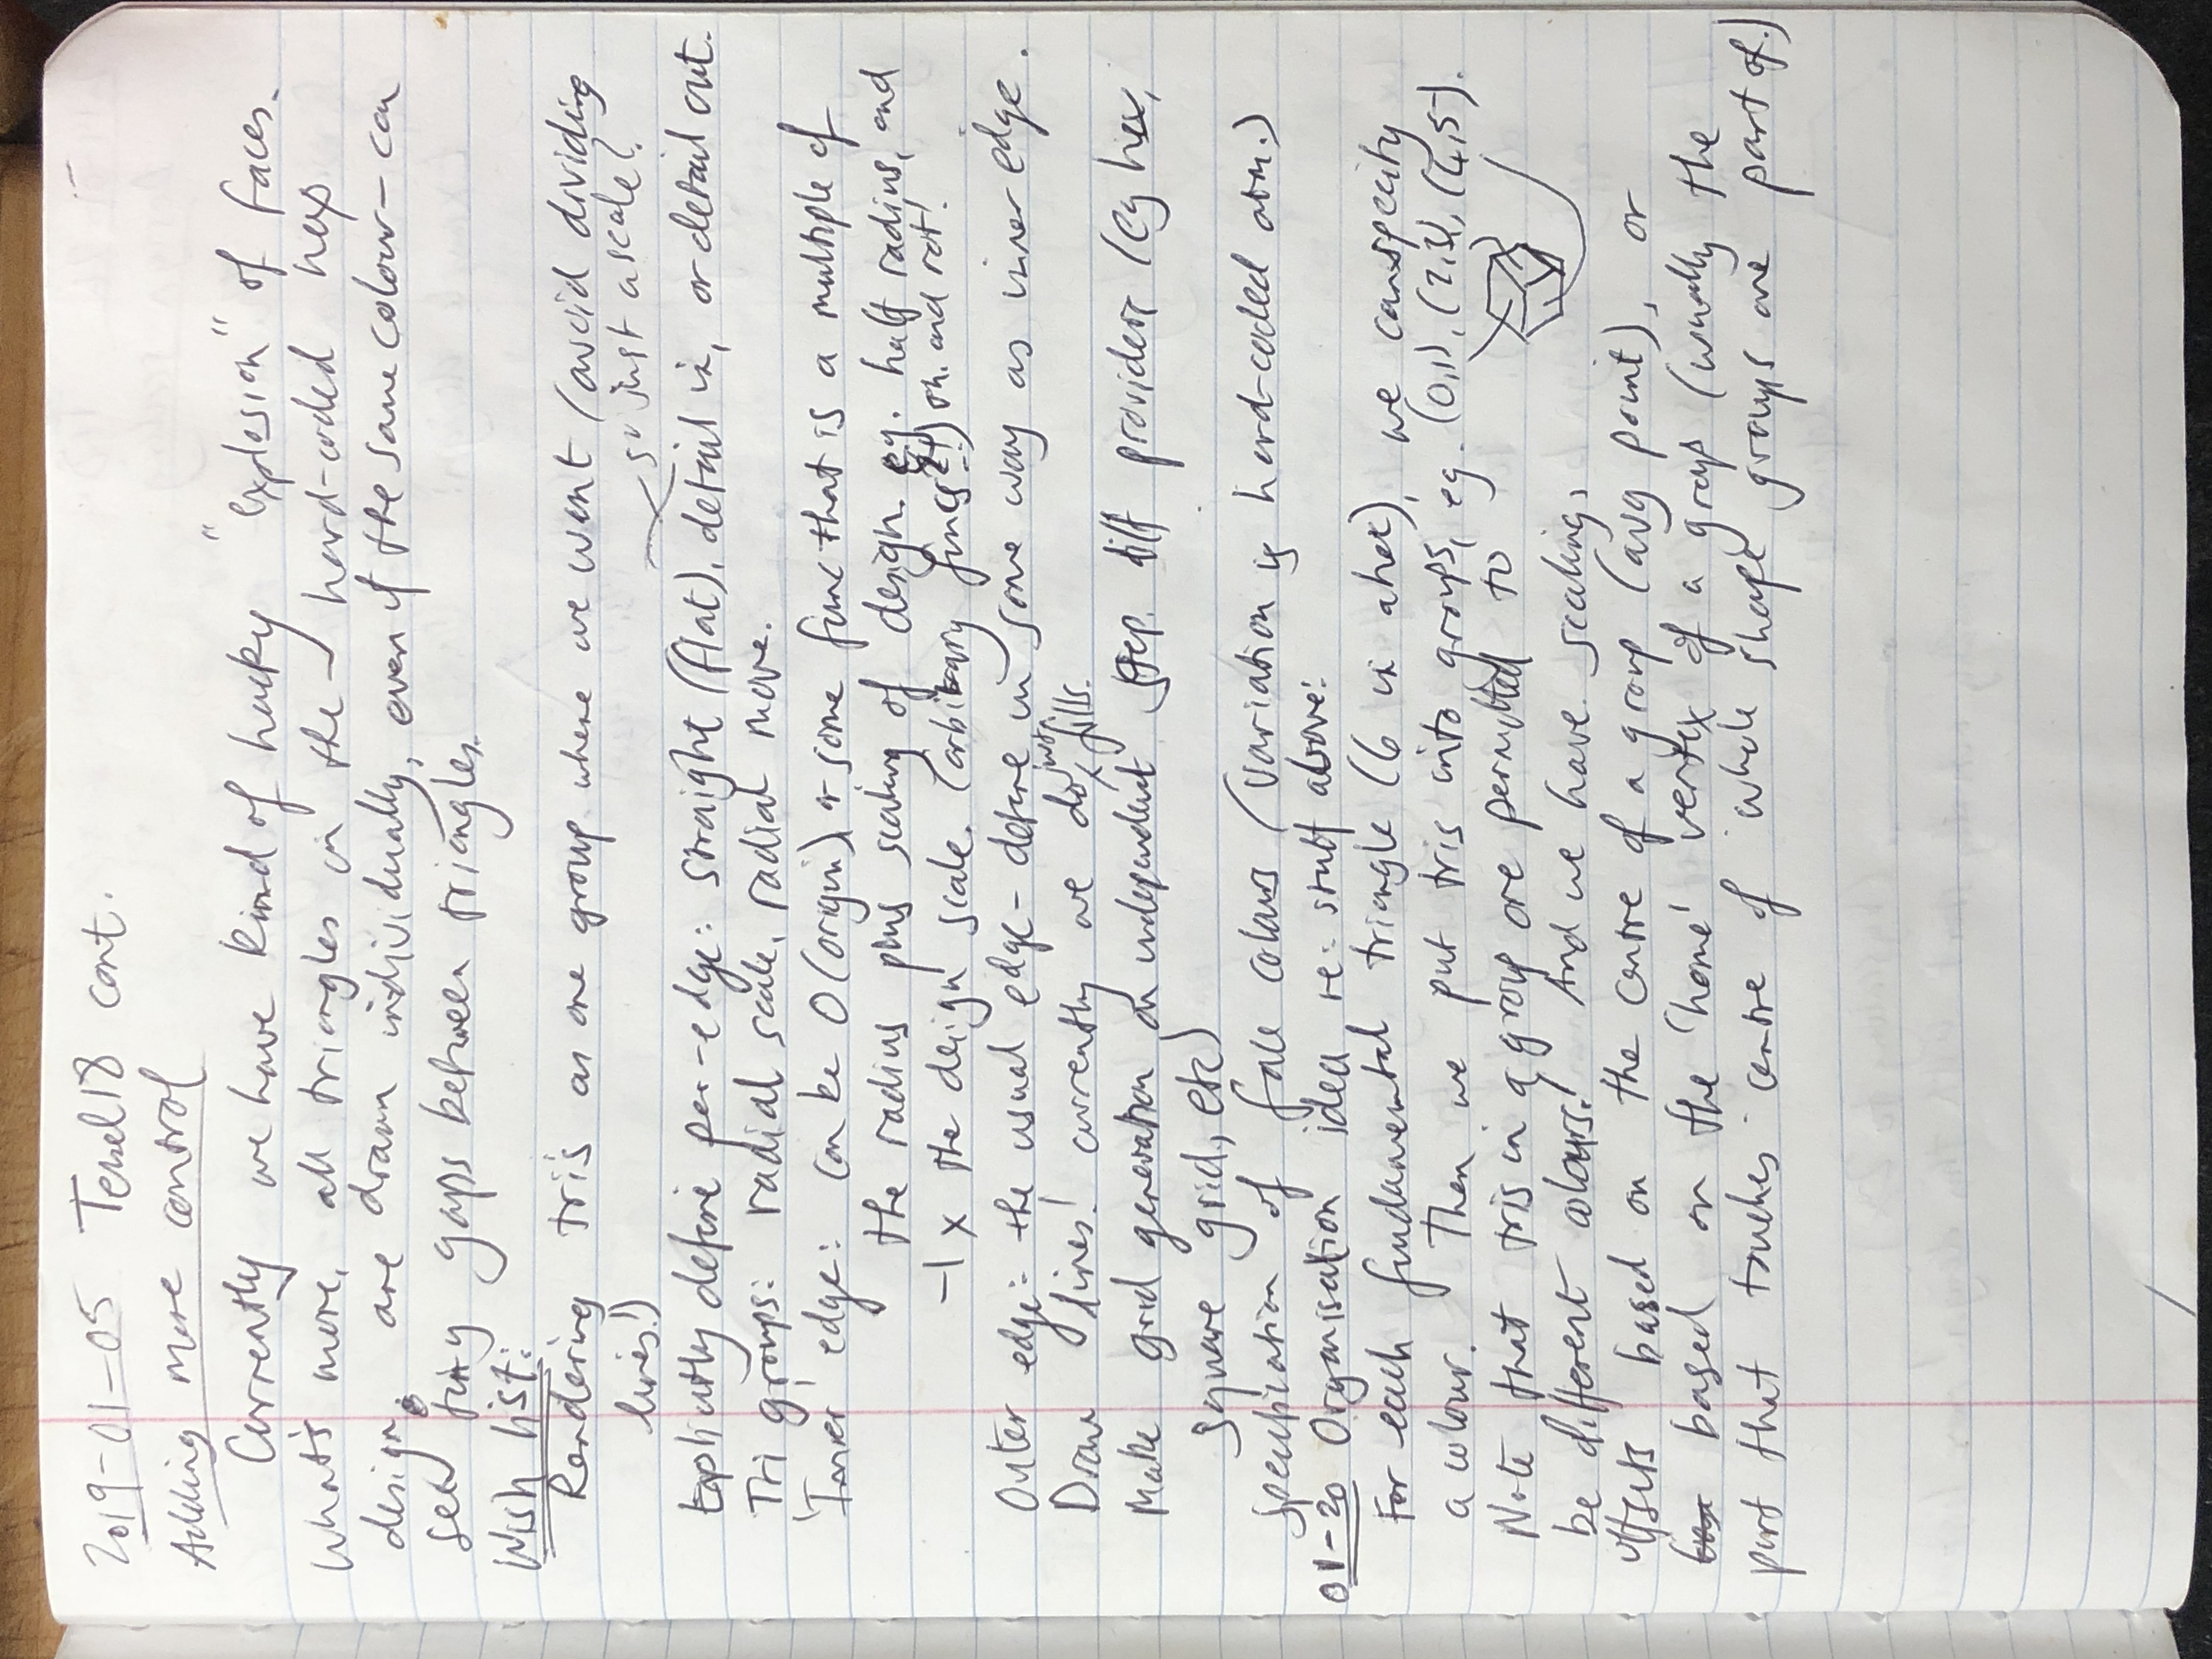 2019-01-05 Tessel18 cont.
Adding more control
Currently we have kind of hacky "explosion" of faces.
What's more, all triangles in the hard-coded hex
design are drawn individually, even if the same colour - can
see tiny gaps between triangles.
Wish list:
Rendering tri's as one group where we want (avoid dividing
lines!)
so just a scale?
Explicitly define per-edge: straight (flat), detail in, or detail out.
Tri groups: radial scale, radial move.
'Inner' edge: can be 0 (origin) or some func that is a multiple of
the radius plus scaling of design. eg. half radius, and
-1 x the design scale. (arbitrary funcs?!) oh. and rot!
Outer edge: the usual edge - define in same way as inner edge.
Draw lines! currently we do just fills.
Make grid generation an independent step. diff providers (eg hex,
square grid, etc)
Specification of face colours (variation is hard-coded atm.)
01-20 Organisation idea re: stuff above:
For each fundamental triangle (6 in a hex), we can specify
a colour. Then we put tris into groups, eg. (0,1), (2,3), (4,5).
Note that tris in a group are permitted to
be different colours! And we have scaling,
offsets based on the centre of a group (avg point), or
based on the 'home' vertex of a group (usually the
part that touches centre of whole shape groups are part of.)